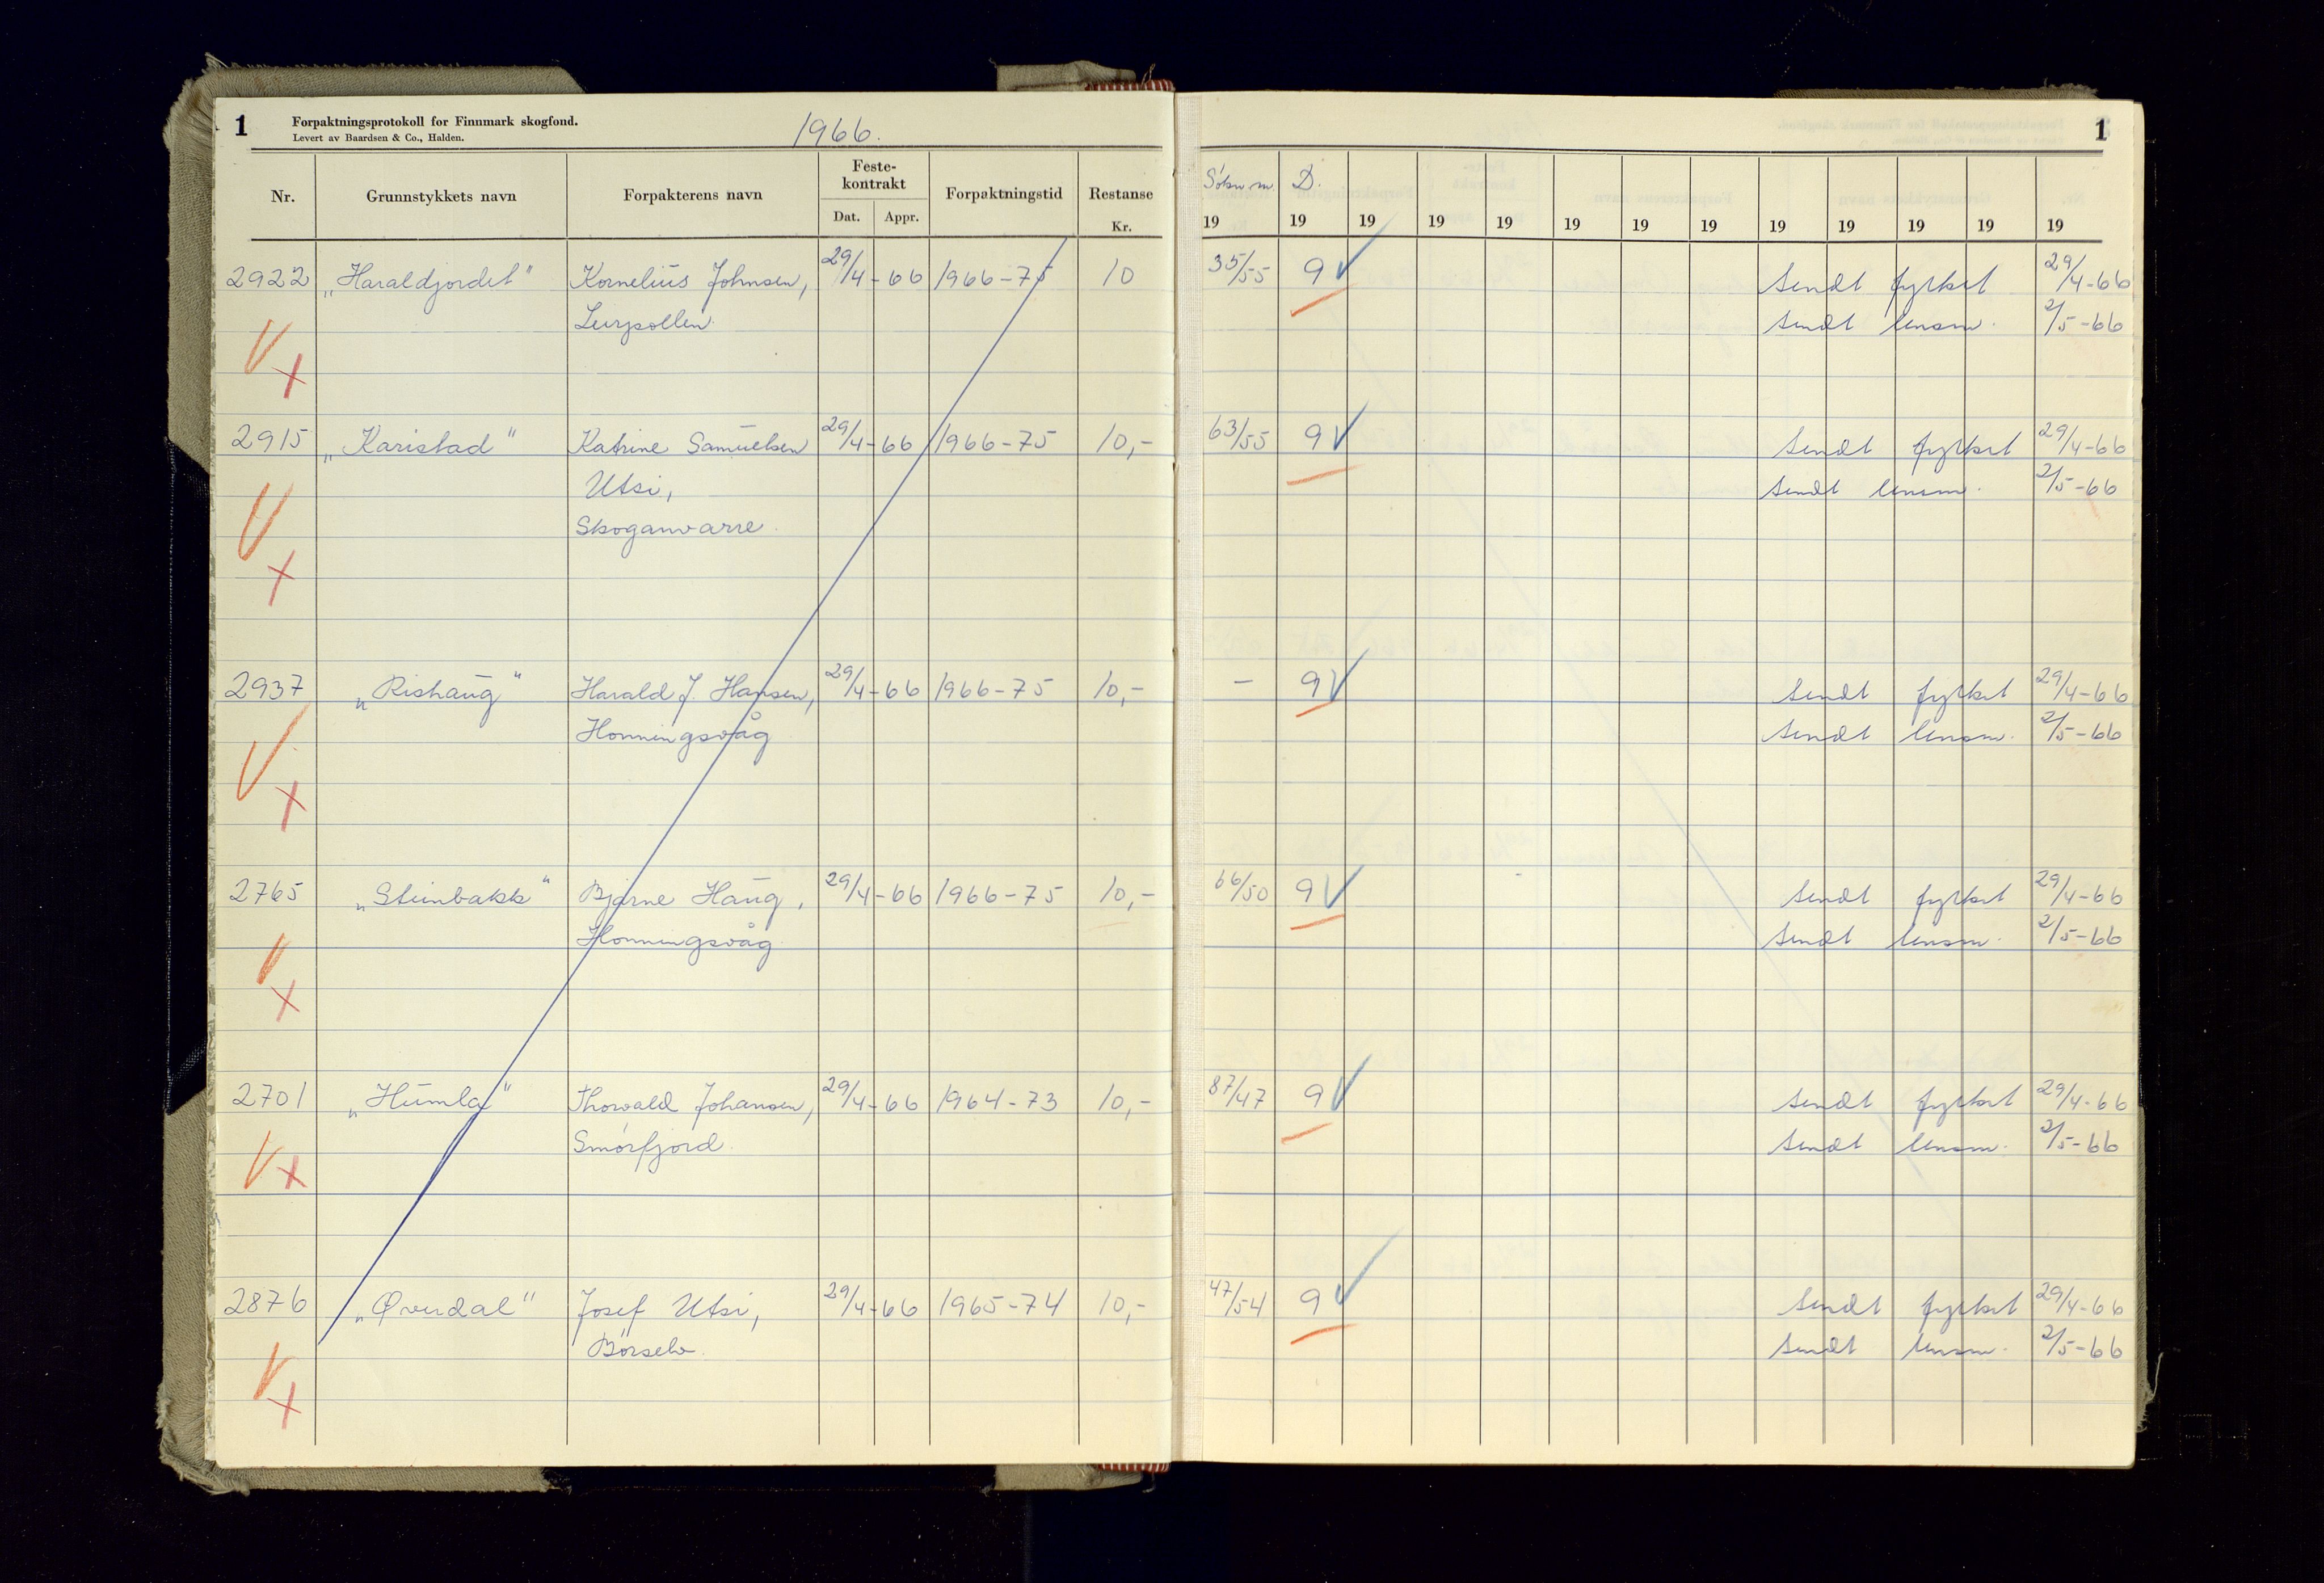 1 Forpaktningsprotokoll for Finnmark skogfond. 1966. 1
Levert av Baardsen & Co., Halden.
Nr. Grunnstykkets navn Forpakterens navn Feste-kontrakt Forpaktningstid Restanse D.
Dat. Appr. Kr. 19 19 19 19 19 19 19 19 19 19 19 19 19
2922 „Haraldjordet" Kornelius Johnsen, 29/4-66 1966-75 10 35/55 9 V Sendt fylket 29/4-66
Leirpollen. Sendt lensm. 2/5-66
V X
2915 „Karistad" Katrine Samuelsen 29/4-66 1966-75 10,- 63/55 9 V Sendt fylket 29/4-66
Utsi, Sendt lensm. 2/5-66
Skoganvarre.
V X
2937 „Rishaug" Harald J. Hansen, 29/4-66 1966-75 10,- - 9 V Sendt fylket 29/4-66
Honningsvåg Sendt lensm. 2/5-66
V X
2765 „Steinbakk" Bjarne Haug, 29/4-66 1966-75 10,- 66/50 9 V Sendt fylket 29/4-66
Honningsvåg Sendt lensm. 2/5-66
V X
2701 „Humla" Thorvald Johansen, 29/4-66 1964-73 10,- 87/47 9 V Sendt fylket 29/4-66
Smørfjord. Sendt lensm. 2/5-66
V X
2876 „Øverdal" Josef Utsi, 29/4-66 1965-74 10,- 47/54 9 V Sendt fylket 29/4-66
Børselv. Sendt lensm. 2/5-66
V X